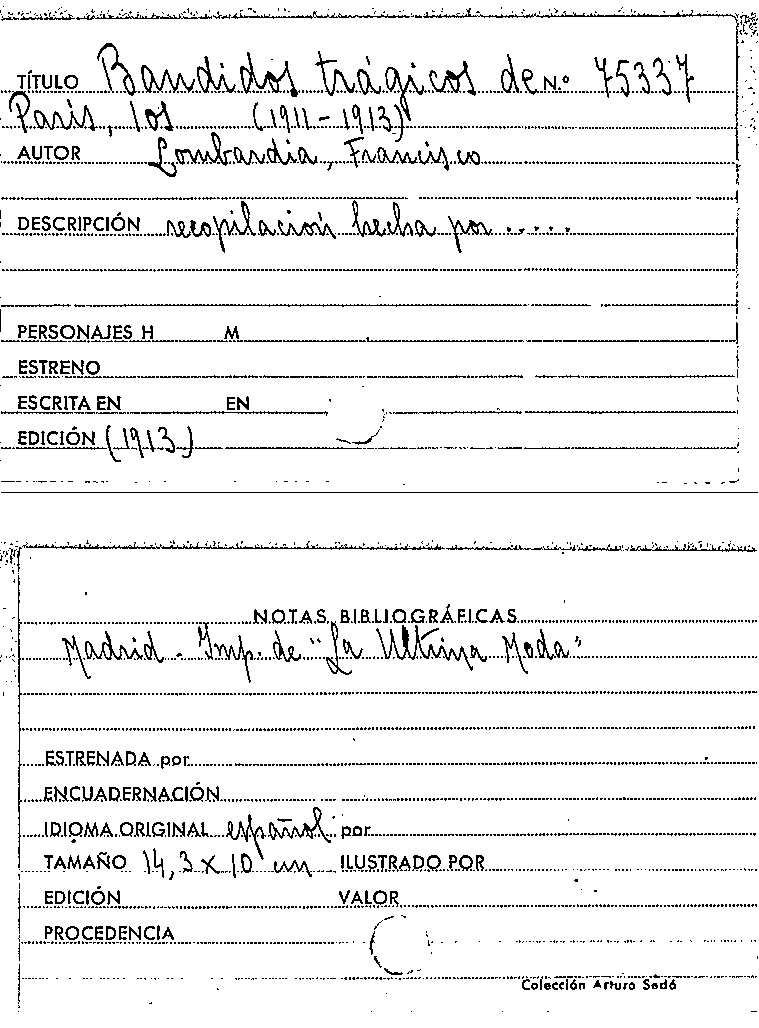 TÍTULO Bandidos trágicos de N.º 75337
París, los (1911-1913)
AUTOR Lombardia, Francisco
DESCRIPCIÓN recopilación hecha por .....
PERSONAJES H M
ESTRENO
ESCRITA EN EN
EDICIÓN (1913)
NOTAS BIBLIOGRÁFICAS
Madrid - Imp. de "La Ultima Moda"
ESTRENADA por
ENCUADERNACIÓN
IDIOMA ORIGINAL español por
TAMAÑO 14,3 x 10 cm ILUSTRADO POR
EDICIÓN VALOR
PROCEDENCIA
Colección Arturo Sedó